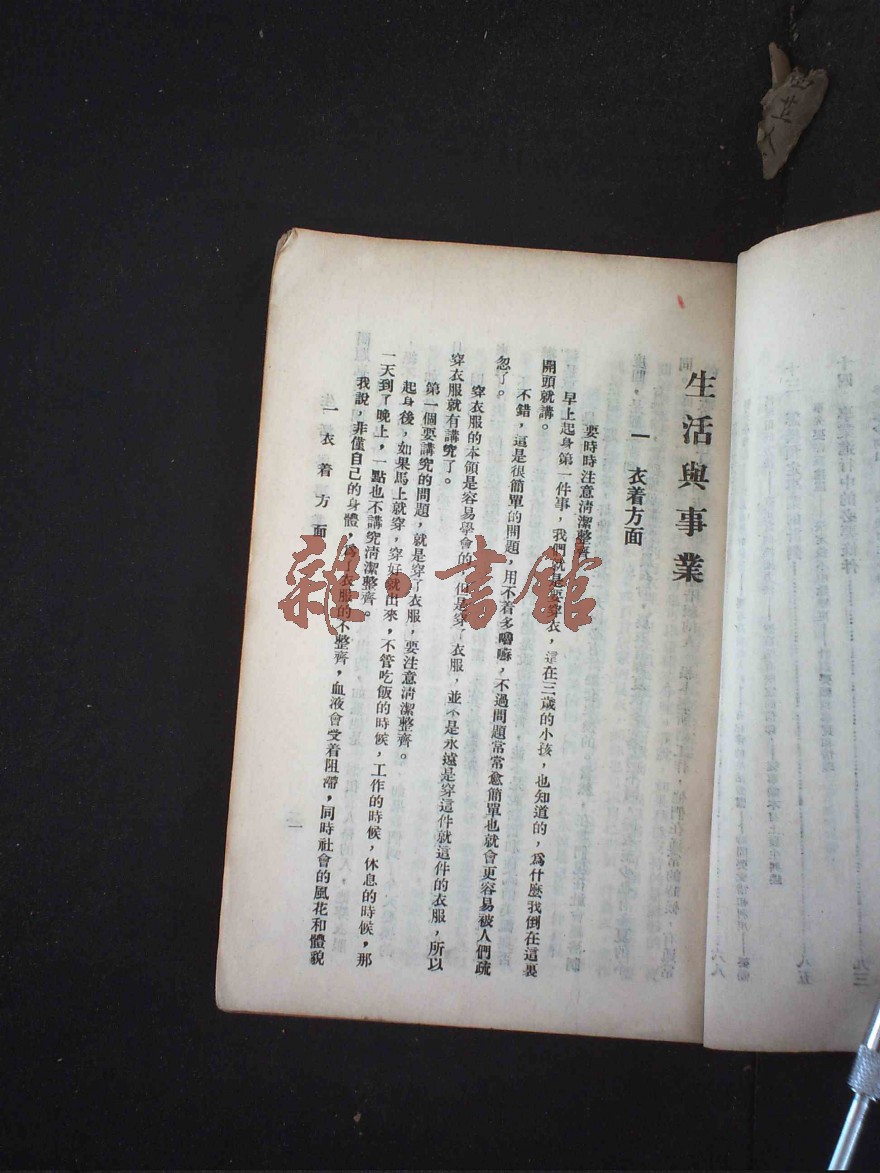 生活與事業
一 衣着方面
要時時注意清潔整齊
早上起身第一件事，我們就是要穿衣，這在三歲的小孩，也知道的，爲什麼我倒在這裏
開頭就講。
不錯，這是很簡單的問題，用不着多嚕囌，不過問題常常愈簡單也就會更容易被人們疏
忽了。
穿衣服的本領是容易學會的，但是穿了衣服，並不是永遠是穿這件就這件的衣服，所以
穿衣服就有講究了。
第一個要講究的問題，就是穿了衣服，要注意清潔整齊。
起身後，如果馬上就穿，穿好就出來，不管吃飯的時候，工作的時候，休息的時候，那
一天到了晚上，一點也不講究清潔整齊。
我說，非僅自己的身體，爲了衣服的不整齊，血液會受着阻滯，同時社會的風花和體貌
一 衣着方面
一
雜·書館